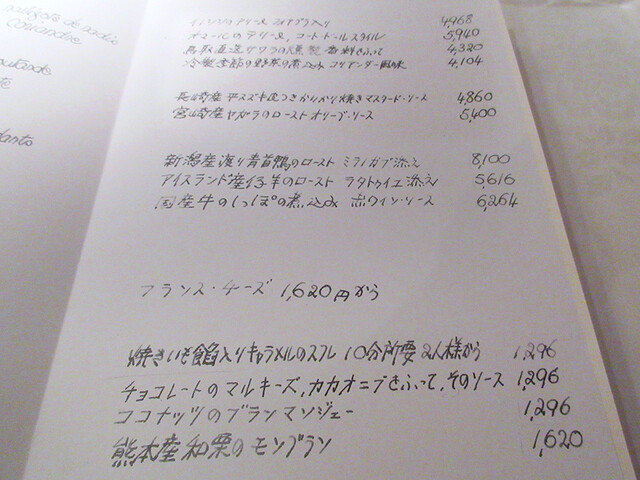 radis
coriandre
フォアグラ入り 4,968
オマールのテリーヌ、コートドールスタイル 5,940
鳥取直送サワラの燻製 香鮮さふって 4,320
冷製季節の野菜の煮込み コリアンダー風味 4,104
長崎産平スズキ皮つきかりかり焼きマスタード・ソース 4,860
宮崎産ヤガラのロースト オリーブ・ソース 5,400
新潟産渡り青首鴨のロースト ミラノカブ添え 8,100
アイスランド産仔羊のロースト ラタトゥイユ添え 5,616
国産牛のしっぽの煮込み ポワイン・ソース 6,264
フランス・チーズ 1,620円から
焼きいも餡入りキャラメルのスフレ 10分所要 2人様から 1,296
チョコレートのマルキーズ、カカオニブさふって、そのソース 1,296
ココナッツのブランマンジェー 1,296
熊本産和栗のモンブラン 1,620